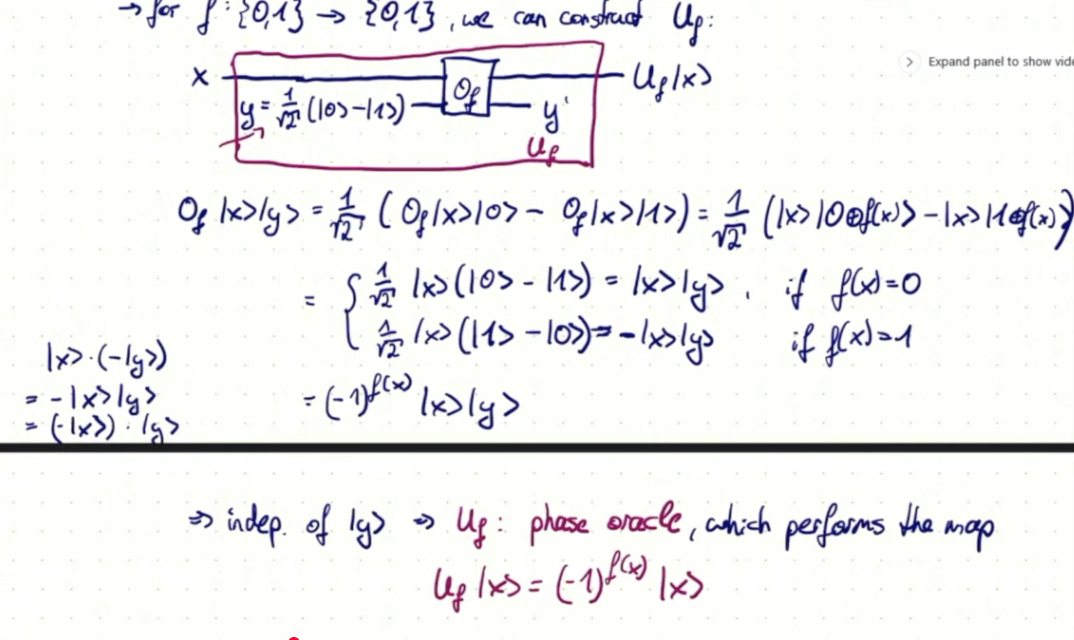 → for f: {0,1} → {0,1}, we can construct U_f:
Expand panel to show vide
x
U_f|x>
y = 1/√2 (|0> - |1>)
O_f
y'
U_f
O_f |x>|y> = 1/√2 (O_f|x>|0> - O_f|x>|1>) = 1/√2 (|x>|0⊕f(x)> - |x>|1⊕f(x)>)
= { 1/√2 |x>(|0> - |1>) = |x>|y>, if f(x)=0
1/√2 |x>(|1> - |0>) = -|x>|y> if f(x)=1
|x>·(-|y>)
= -|x>|y>
= (-|x>)·|y>
= (-1)^f(x) |x>|y>
⇒ indep. of |y> ⇒ U_f: phase oracle, which performs the map
U_f |x> = (-1)^f(x) |x>